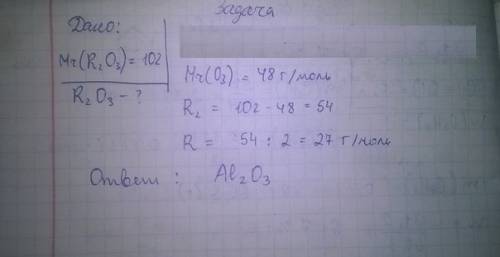 задача
Дано:
Mr(R₂O₃) = 102
R₂O₃ - ?
Mr(O₃) = 48 г/моль
R₂ = 102 - 48 = 54
R = 54 : 2 = 27 г/моль
Ответ : Al₂O₃